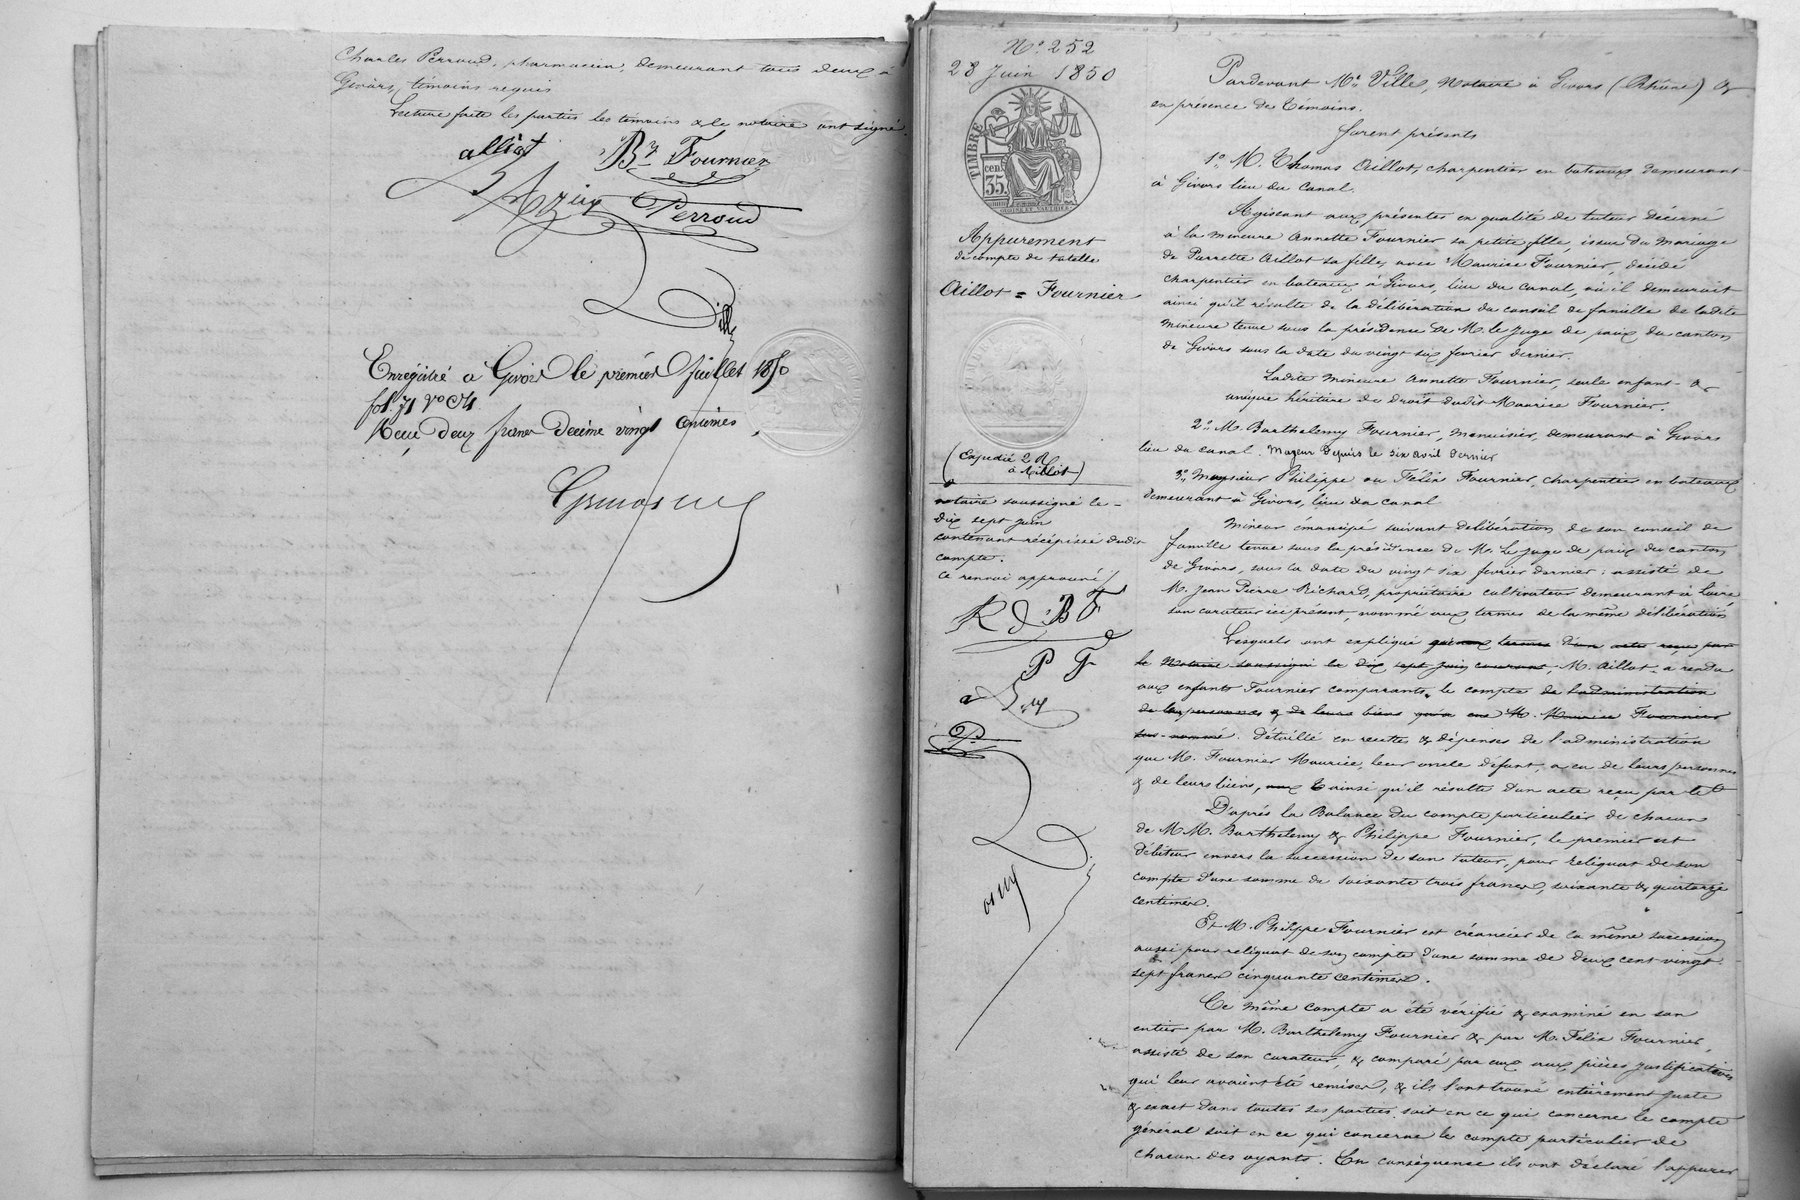 Charles Perroud, pharmacien, demeurant tous deux à
Givors, témoins requis
Lecture faite les parties les témoins & le notaire ont signé.
alliot By Fournier
Perroud
Ville
Enregistré a Givors le premier Juillet 1850
fol. 71 Vo
Reçu deux francs Decime vingt centimes
No. 252
28 Juin 1850
TIMBRE
cen.
35.
Appurement
de compte de tutelle
Aillot = Fournier
(Expédié 2 R
à Aillot)
notaire soussigné le
dix sept juin
contenant récépissé dudit
compte.
ce renvoi approuvé
R J B F
P F
a
P
Pardevant Me. Ville, Notaire à Givors (Rhône) &
en présence de témoins.
furent présents
1o. M. Thomas Aillot, charpentier en bateaux demeurant
à Givors lieu du Canal.
Agissant aux présentes en qualité de tuteur décerné
à la mineure Annette Fournier sa petite fille, issue du mariage
de Pierrette Aillot sa fille, avec Maurice Fournier, décédé
charpentier en bateaux à Givors, lieu du Canal, où il demeurait
ainsi qu'il résulte de la délibération du conseil de famille de ladite
mineure tenue sous la présidence de M. le Juge de paix du canton
de Givors sous la date du vingt six fevrier dernier.
Ladite mineure Annette Fournier, seule enfant &
unique héritière de droit dudit Maurice Fournier.
2o. M. Barthelemy Fournier, Menuisier, demeurant à Givors
lieu du Canal. Majeur Depuis le six avril dernier
3o. Monsieur Philippe ou Félix Fournier, charpentier en bateaux
demeurant à Givors, lieu du Canal
Mineur émancipé suivant délibération de son conseil de
famille tenue sous la présidence de M. le Juge de paix du canton
de Givors, sous la date du vingt six fevrier dernier : assisté de
M. Jean Pierre Richard, propriétaire cultivateur demeurant à Loire
son curateur ici présent, nommé aux termes de la même délibération
Lesquels ont expliqué qu'aux termes d'un acte reçu par
le Notaire soussigné le dix sept juin courant, M. Aillot a rendu
aux enfants Fournier comparants, le compte de l'administration
de leurs personnes & de leurs biens qu'a eue M. Maurice Fournier
sus-nommé. détaillé en recettes & dépenses de l'administration
que M. Fournier Maurice, leur oncle défunt, a eu de leurs personnes
& de leurs biens, ainsi qu'il résulte d'un acte reçu par le
D'après la Balance du compte particulier de chacun
de MM. Barthelemy & Philippe Fournier, le premier est
débiteur envers la succession de son tuteur, pour reliquat de son
compte d'une somme de soixante trois francs, soixante & quatorze
centimes.
Et M. Philippe Fournier est créancier de la même succession
aussi pour reliquat de son compte d'une somme de deux cent vingt
sept francs cinquante centimes.
Ce même compte a été vérifié & examiné en son
entier par M. Barthelemy Fournier & par M. Félix Fournier,
assisté de son curateur, & comparé par eux aux pièces justificatives
qui leur avaient été remises, & ils l'ont trouvé entièrement juste
& exact dans toutes ses parties, soit en ce qui concerne le compte
général soit en ce qui concerne le compte particulier de
chacun des oyants. En conséquence ils ont déclaré l'appurer